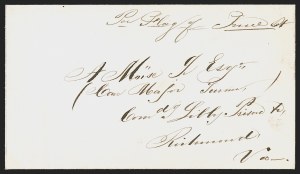 Per Flag of Truce
A M
(Care Major Turner)
Com'd'g Libby Prison
Richmond
Va